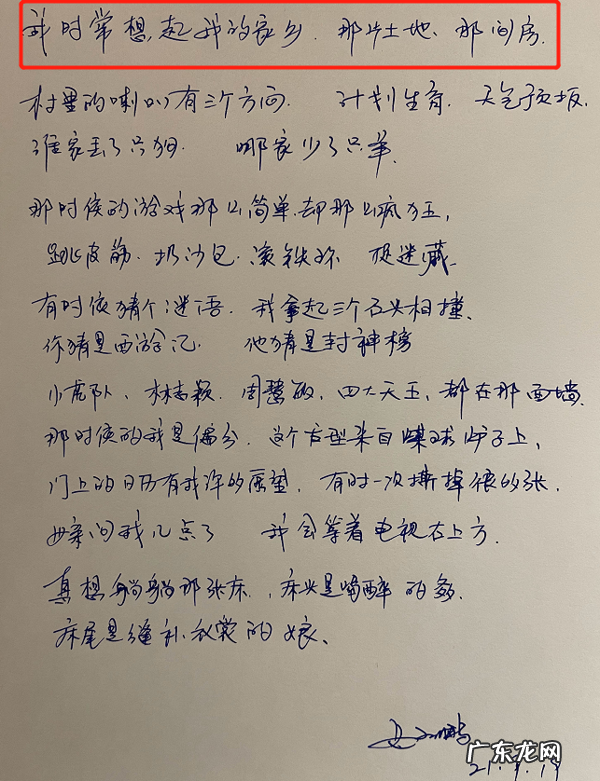 我时常想起我的家乡 那片土地、那间房.
村里的喇叭有三个方向. 计划生育. 天气预报.
谁家丢了只狗. 哪家少了只羊.
那时候的游戏那么简单.却那么疯狂,
跳皮筋. 扔沙包. 滚铁环 捉迷藏.
有时候猜个谜语. 我拿起三个石头相撞.
你猜是西游记. 他猜是封神榜
小虎队、林志颖. 周慧敏, 四大天王, 都在那面墙.
那时候的我是偏分. 这个发型来自煤球炉子上,
门上的日历有我许的愿望, 有时一次撕掉很多张.
母亲问我几点了 我会等着电视右上方.
真想躺躺那张床, 床头是喝醉的爹.
床尾是缝补衣裳的娘、
21.9.19
广东龙网